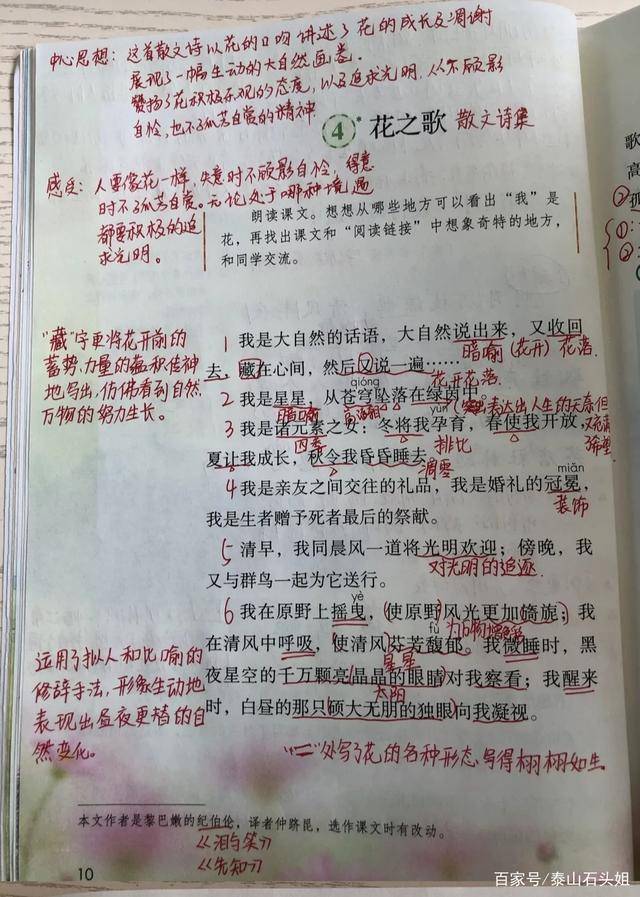 中心思想：这首散文诗以花的口吻讲述了花的成长及凋谢
展现了一幅生动的大自然画卷。
赞扬了花积极乐观的态度，以及追求光明，从不顾影
自怜，也不孤芳自赏的精神
4 花之歌 散文诗集
感受：人要像花一样，失意时不顾影自怜，得意
时不孤芳自赏。无论处于哪种境遇
都要积极的追
求光明。
朗读课文。想想从哪些地方可以看出“我”是
花，再找出课文和“阅读链接”中想象奇特的地方，
和同学交流。
“藏”字更将花开前的
蓄势、力量的蕴积传神
地写出，仿佛看到自然
万物的努力生长。
1 我是大自然的话语，大自然说出来，又收回
暗喻（花开）花落
去，藏在心间，然后又说一遍……
花开花落
qióng
2 我是星星，从苍穹坠落在绿茵中。
yùn
3 我是诸元素之女：冬将我孕育，春使我开放，
四季 排比
夏让我成长，秋令我昏昏睡去。
凋零
miǎn
4 我是亲友之间交往的礼品，我是婚礼的冠冕，
装饰
我是生者赠予死者最后的祭献。
5 清早，我同晨风一道将光明欢迎；傍晚，我
对光明的追逐
又与群鸟一起为它送行。
yè
6 我在原野上摇曳，使原野风光更加旖旎；我
fù
在清风中呼吸，使清风芬芳馥郁。我微睡时，黑
星星
夜星空的千万颗亮晶晶的眼睛对我察看；我醒来
太阳
时，白昼的那只硕大无朋的独眼向我凝视。
运用了拟人和比喻的
修辞手法，形象生动地
表现出昼夜更替的自
然变化。
“＝”处写了花的各种形态，写得栩栩如生
本文作者是黎巴嫩的纪伯伦，译者仲跻昆，选作课文时有改动。
《泪与笑》
《先知》
10
百家号/泰山石头姐